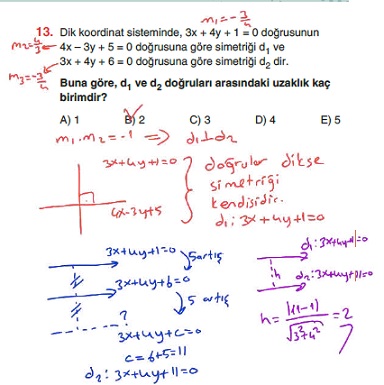 m₁=-3/4
13. Dik koordinat sisteminde, 3x + 4y + 1 = 0 doğrusunun
m₂=4/3
4x – 3y + 5 = 0 doğrusuna göre simetriği d₁ ve
3x + 4y + 6 = 0 doğrusuna göre simetriği d₂ dir.
m₃=-3/4
Buna göre, d₁ ve d₂ doğruları arasındaki uzaklık kaç
birimdir?
A) 1 B) 2 C) 3 D) 4 E) 5
m₁.m₂=-1 ⇒ d₁⊥d₂
3x+4y+1=0
4x-3y+5
doğrular dikse
simetriği
kendisidir.
d₁: 3x+4y+1=0
3x+4y+1=0
5 artış
3x+4y+6=0
5 artış
?
3x+4y+c=0
c=6+5=11
d₂: 3x+4y+11=0
d₁: 3x+4y+1=0
h
d₂: 3x+4y+11=0
h = |11-1| / √3²+4² = 2